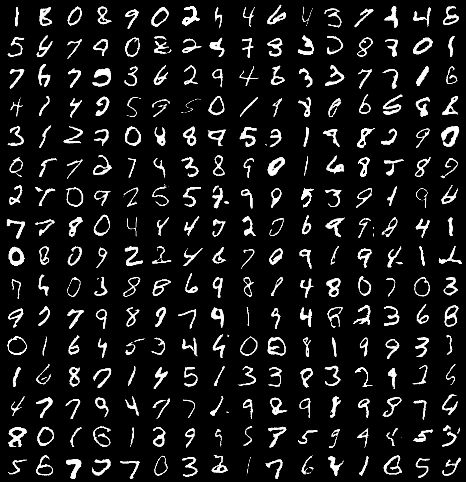 1 8 0 8 9 0 2 4 6 4 3 7 1 4 8
5 4 7 9 0 8 2 4 7 8 3 0 8 7 0 1
7 4 7 2 3 6 2 9 4 6 3 3 7 7 1 6
4 1 4 2 5 9 5 0 1 9 8 0 6 6 8 8
3 1 2 7 0 8 8 9 5 9 1 9 8 2 9 0
0 5 7 2 7 9 3 8 9 0 1 6 8 5 8 9
2 7 0 9 2 5 5 2 9 8 5 3 9 1 9 6
7 7 8 0 4 8 4 7 2 0 6 9 9 8 4 1
0 8 0 9 2 3 4 6 7 0 9 1 9 4 1 2
7 4 0 3 8 8 6 9 8 1 4 8 0 7 0 3
9 7 7 9 8 9 7 9 1 9 4 8 2 3 6 8
0 1 6 4 5 3 4 4 0 0 8 1 9 9 3 3
1 6 8 7 1 4 5 1 3 3 8 3 2 9 3 6
4 7 7 9 4 7 7 1 9 8 9 8 9 8 7 4
8 0 1 6 1 8 9 9 5 7 5 9 4 4 5 3
5 6 7 7 7 0 3 6 1 7 6 2 1 6 5 4